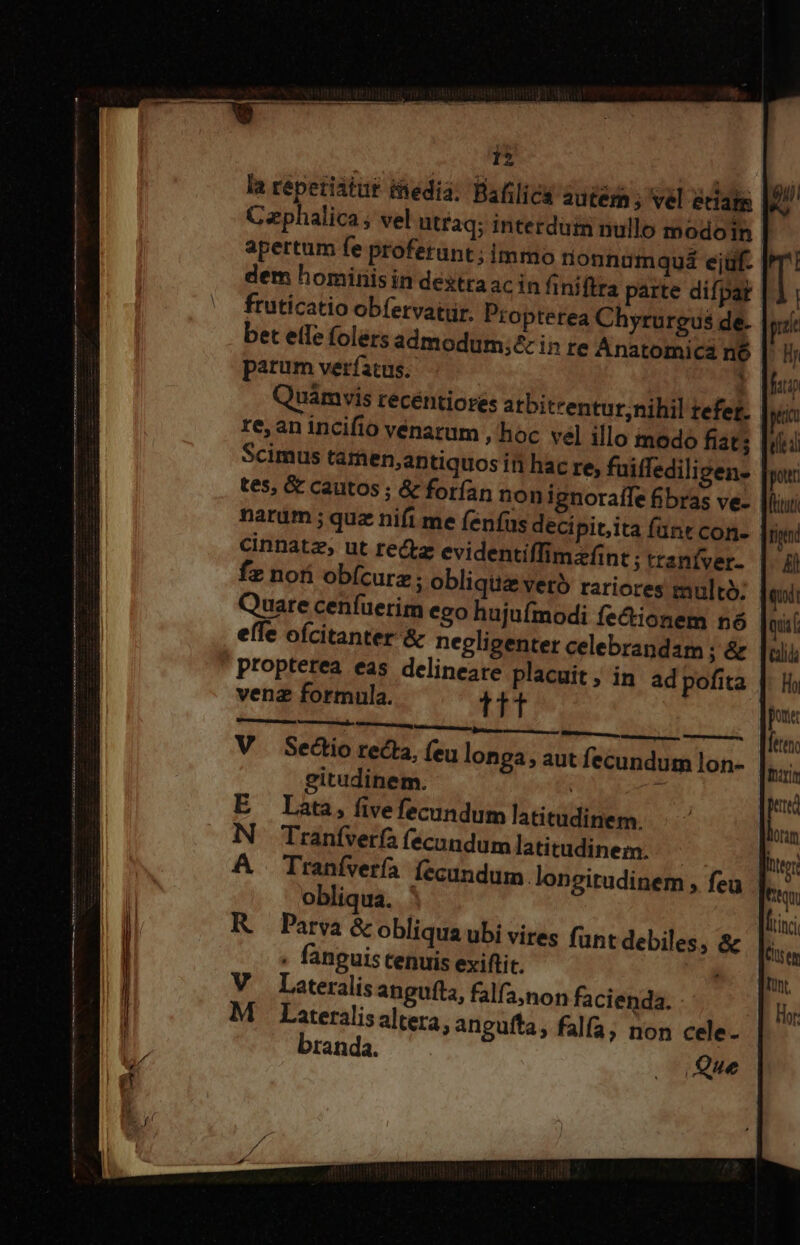 12
la repetiatur media. Baſilica autem; vel etiam
Cæphalica, vel utraq; interdum nullo modo in
apertum ſe proferunt; immo nonnumquā ejuſ-
dem hominis in dextra ac in ſiniſtra parte diſpar
fruticatio obſervatur. Propterea Chyrurgus de-
bet eſſe ſolers admodum, & in re Anatomica nō
parum verſatus.
Quamvis recentiores arbitrentur, nihil refer-
re, an inciſio venarum, hoc vel illo modo fiat;
Scimus tamen, antiquos in hac re, fuiſſe diligen-
tes, & cautos; & forſan non ignoraſſe fibras ve-
narum; quæ niſi me ſenſus decipit, ita ſunt con-
cinnatæ, ut rectæ evidentiſſimæ ſint; tranſver-
ſæ non obſcuræ; obliquæ verò rariores multò:
Quare cenſuerim ego hujuſmodi ſectionem nō
eſſe oſcitanter & negligenter celebrandam; &
propterea eas delineare placuit, in adpoſita
venæ formula. †††
V Sectio recta, ſeu longa, aut ſecundum lon-
gitudinem.
E Lata, ſive ſecundum latitudinem.
N Tranſverſa ſecundum latitudinem.
A Tranſverſa ſecundum longitudinem, ſeu
obliqua.
R Parva & obliqua ubi vires ſunt debiles, &
ſanguis tenuis exiſtit.
V Lateralis anguſta, falſa, non facienda.
M Lateralis altera, anguſta, falſa, non cele-
branda.
Que